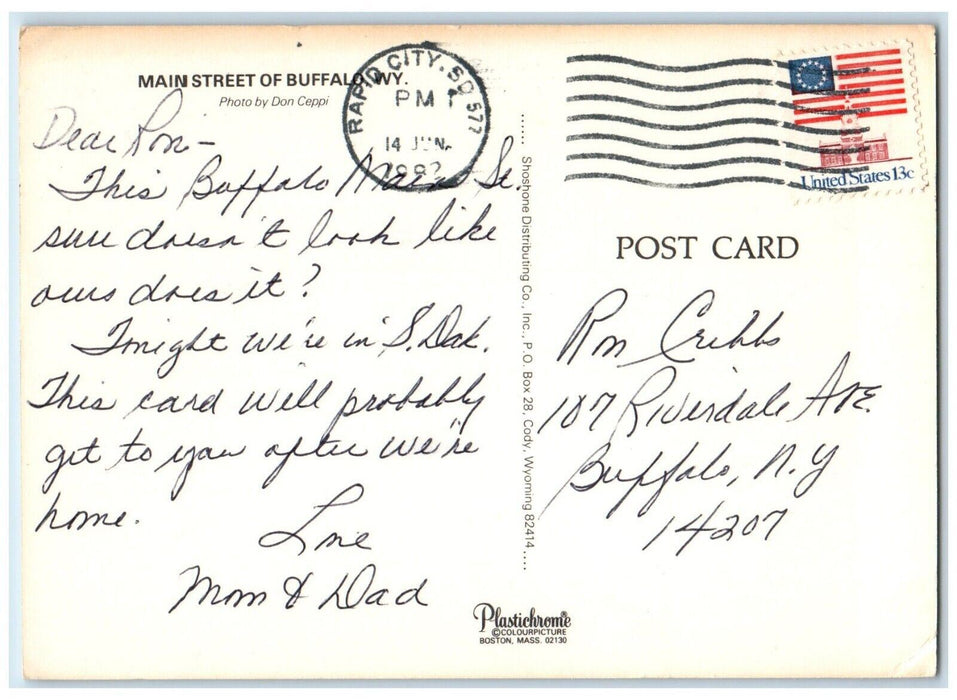 MAIN STREET OF BUFFALO, WY.
Photo by Don Ceppi
Dear Ron -
This Buffalo Main St.
sure doesn't look like
ours does it?
Tonight we're in S. Dak.
This card will probably
get to you after we're
home.
Love
Mom & Dad
RAPID CITY, SD 577
PM
14 JUN
United States 13c
Shoshone Distributing Co., Inc., P.O. Box 28, Cody, Wyoming 82414
POST CARD
Ron Cribbs
107 Riverdale Ave.
Buffalo, N.Y
14207
Plastichrome®
©COLOURPICTURE
BOSTON, MASS. 02130